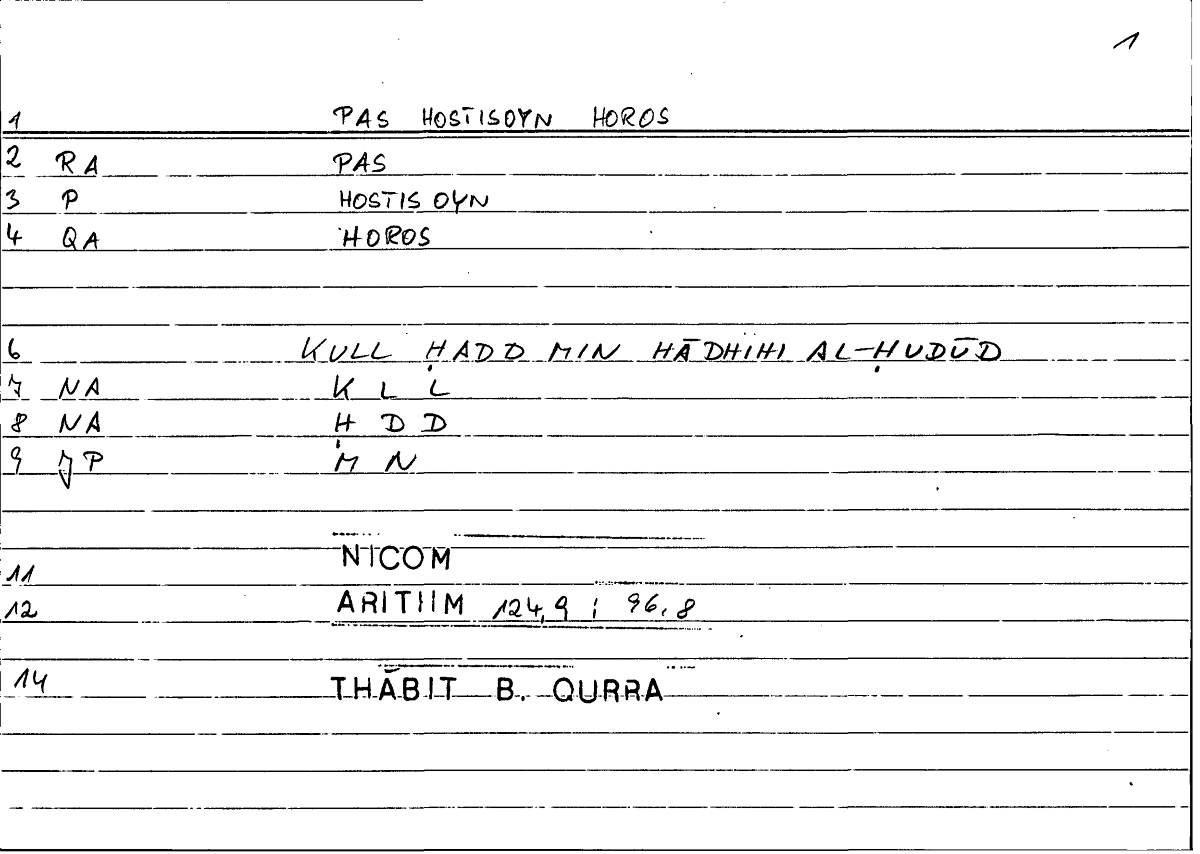 1
1 PAS HOSTISOYN HOROS
2 RA PAS
3 P HOSTIS OYN
4 QA HOROS
6 KULL ḤADD MIN HĀDHIHI AL-ḤUDŪD
7 NA K L L
8 NA Ḥ D D
9 JP M N
11 NICOM
12 ARITHM 124,9 ; 96,8
14 THĀBIT B. QURRA